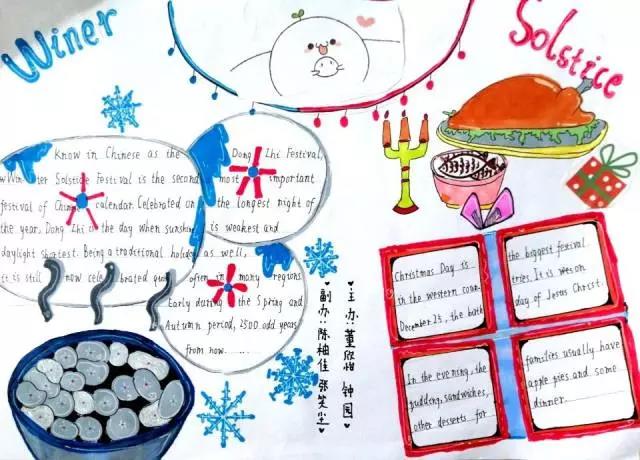 Winer
Solstice
Know in Chinese as the Dong Zhi Festival,
Winter Solstice Festival is the second most important
festival of Chinese calendar. Celebrated on the longest night of
the year, Dong Zhi is the day when sunshine is weakest and
daylight shortest. Being a traditional holiday as well,
it is still now celebrated quite often in many regions.
Early during the Spring and
Autumn period, 2500 odd years
from now......
主办:董欣怡 钟园
副办:陈柚佳 张笑尘
Christmas Day is the biggest festival
in the western countries. It is on
December 25, the birth day of Jesus Christ.
In the evening, the families usually have
pudding, sandwiches, apple pies and some
other desserts for dinner.